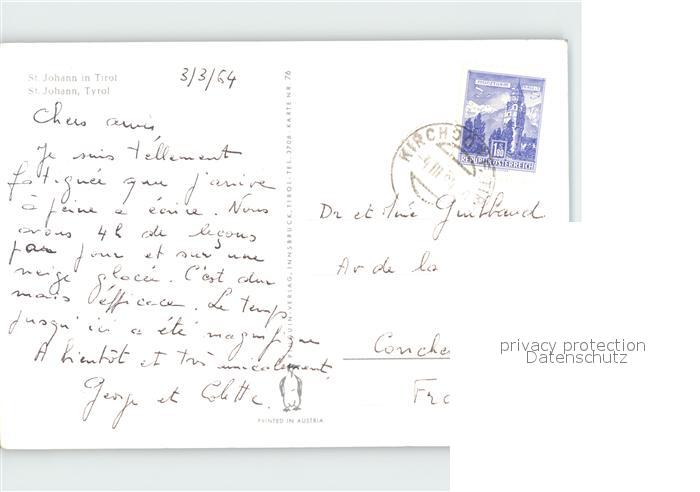 St. Johann in Tirol
St. Johann, Tyrol
3/3/64
Chers amis
Je suis tellement
fatiguée que j'arrive
à peine a écrire. Nous
avons 4h de leçons
par jour et sur une
neige glacée. C'est dur
mais efficace. Le temps
jusqu'ici a été magnifique
A bientôt et très amicalement,
George et Colette.
PINGUIN-VERLAG, INNSBRUCK, TIROL, TEL. 3706 KARTE NR. 76
PRINTED IN AUSTRIA
KIRCHDORF
REPUBLIK ÖSTERREICH
Dr et Mme Guitbaud
Av de la
Conche
Fra
privacy protection
Datenschutz